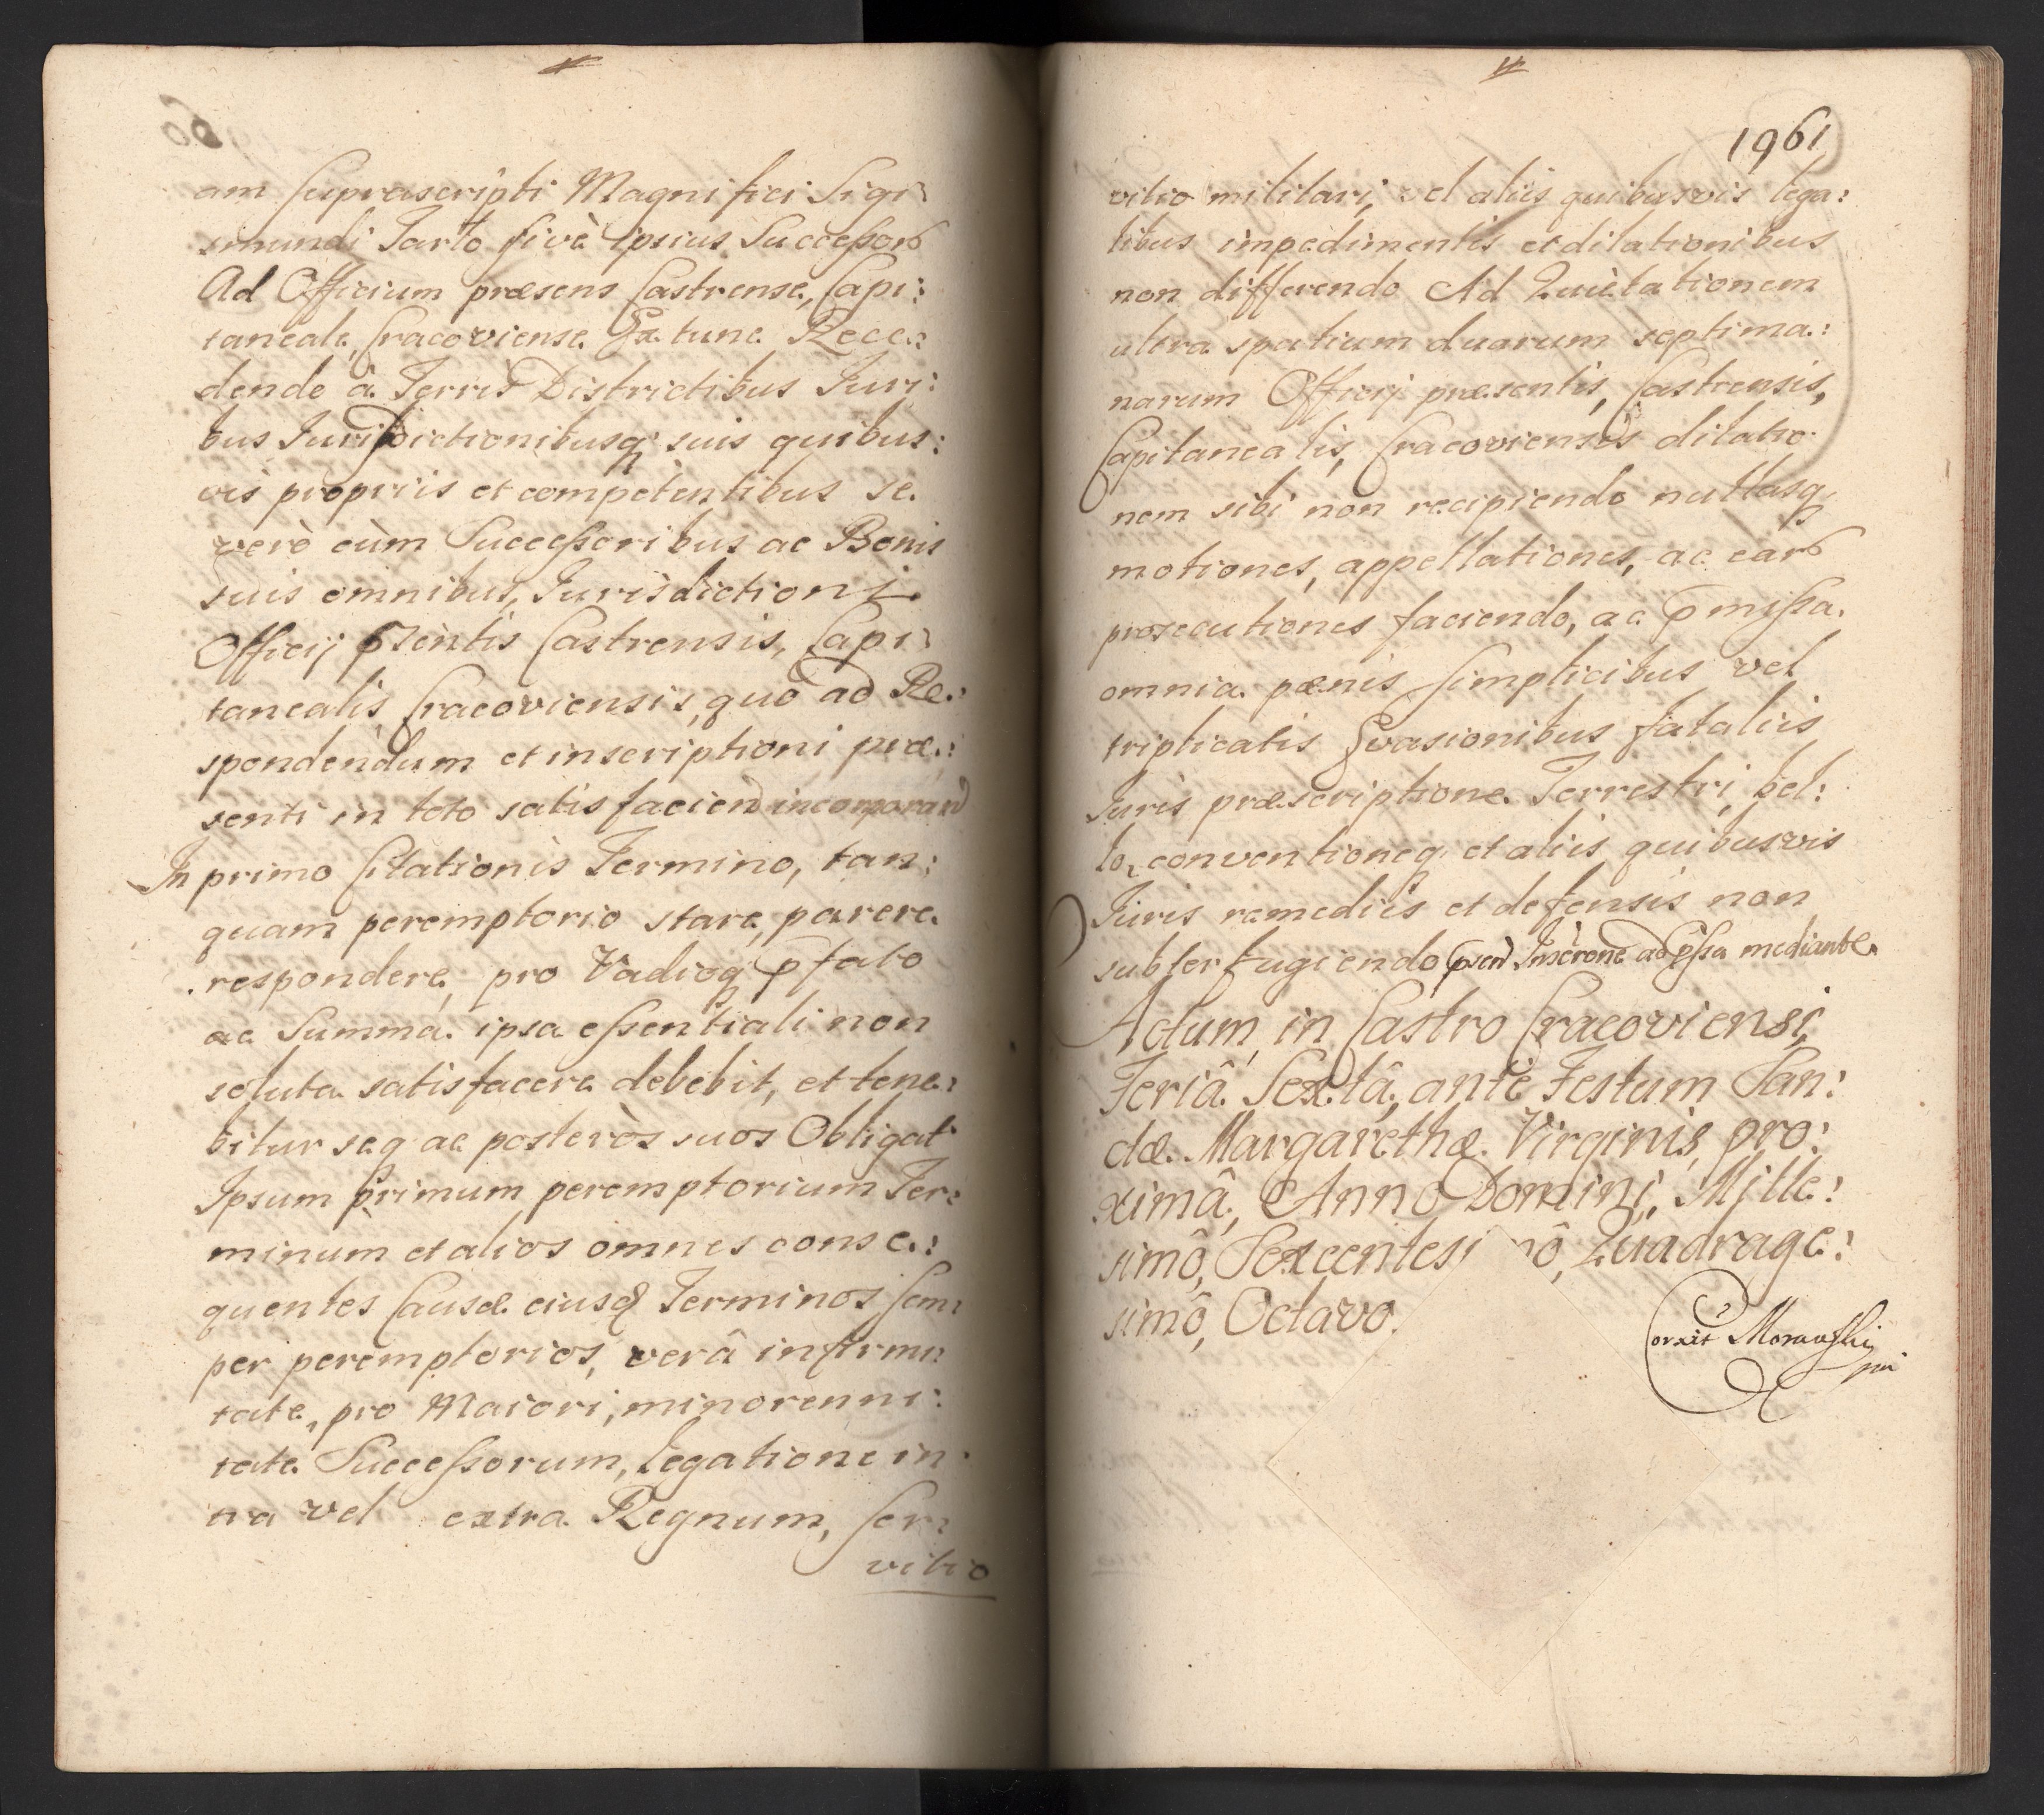 am suprascripti Magnifici Sigi:
smundi Tarło sivè ipsius Successor
Ad Officium præsens Castrense, Capi:
taneale, Cracoviense Ex tunc Rece:
dendo à Terris Districtibus Juri:
bus Jurisdictionibusq suis quibus:
vis propriis et competentibus se
verò cùm Successoribus ac Bonis
suis omnibus, Jurisdictioni
Officij pntis Castrensis, Capi:
tanealis Cracoviensis, quo ad Re:
spondendum et inscriptioni præ:
senti in toto satisfaciend incorporand
In primo Citationis Termino, tan:
quam peremptorio stare, parere
respondere, pro Vadioq pfato
ac Summa ipsa essentiali non
soluta satisfacere debebit, et tene:
bitur seq ac posteròs suos Obligat
Ipsum primum peremptorium Ter:
minum et alios omnes conse:
quentes Causæ eiusd Terminos sem:
per peremptorios, verâ infirmi:
tate, pro Maiori, minorenni:
tate Successorum, Legatione in:
tra vel extra Regnum, ser:
vitio
1961
vitio militari, vel aliis quibusvis lega:
libus impedimentis et dilationibus
non differendo Ad Quietationem
ultra spatium duarum septima:
narum Officij præsentis, Castrensis,
Capitanealis, Cracoviensis dilatio:
nem sibi non recipiendo nullasq
motiones, appellationes, ac ear
prosecutiones faciendo, ac pmissa
omnia pœnis simplicibus vel
triplicatis Evasionibus fataliis
Juris præscriptione Terrestri, bel:
lo, conventioneq et aliis quibusvis
Juris remediis et defensis non
subterfugiendo psen Inscrone ad pssa mediante
Actum in Castro Cracoviensi
Feriâ Sextâ, ante Festum San:
ctæ Margarethæ Virginis, pro:
ximâ, Anno Domini, Mille:
simô, Sexcentesi mô, Quadrage:
simô, Octavo.
Corxit Morawski
mp